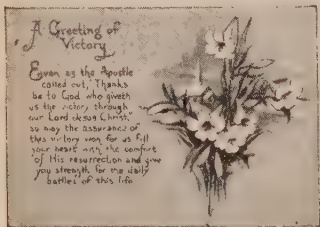 A Greeting of
Victory
Even as the Apostle
called out, "Thanks
be to God who giveth
us the victory through
our Lord Jesus Christ,"
so may the assurance of
this victory won for us fill
your heart with the comfort
of His resurrection and give
you strength for the daily
battles of this life